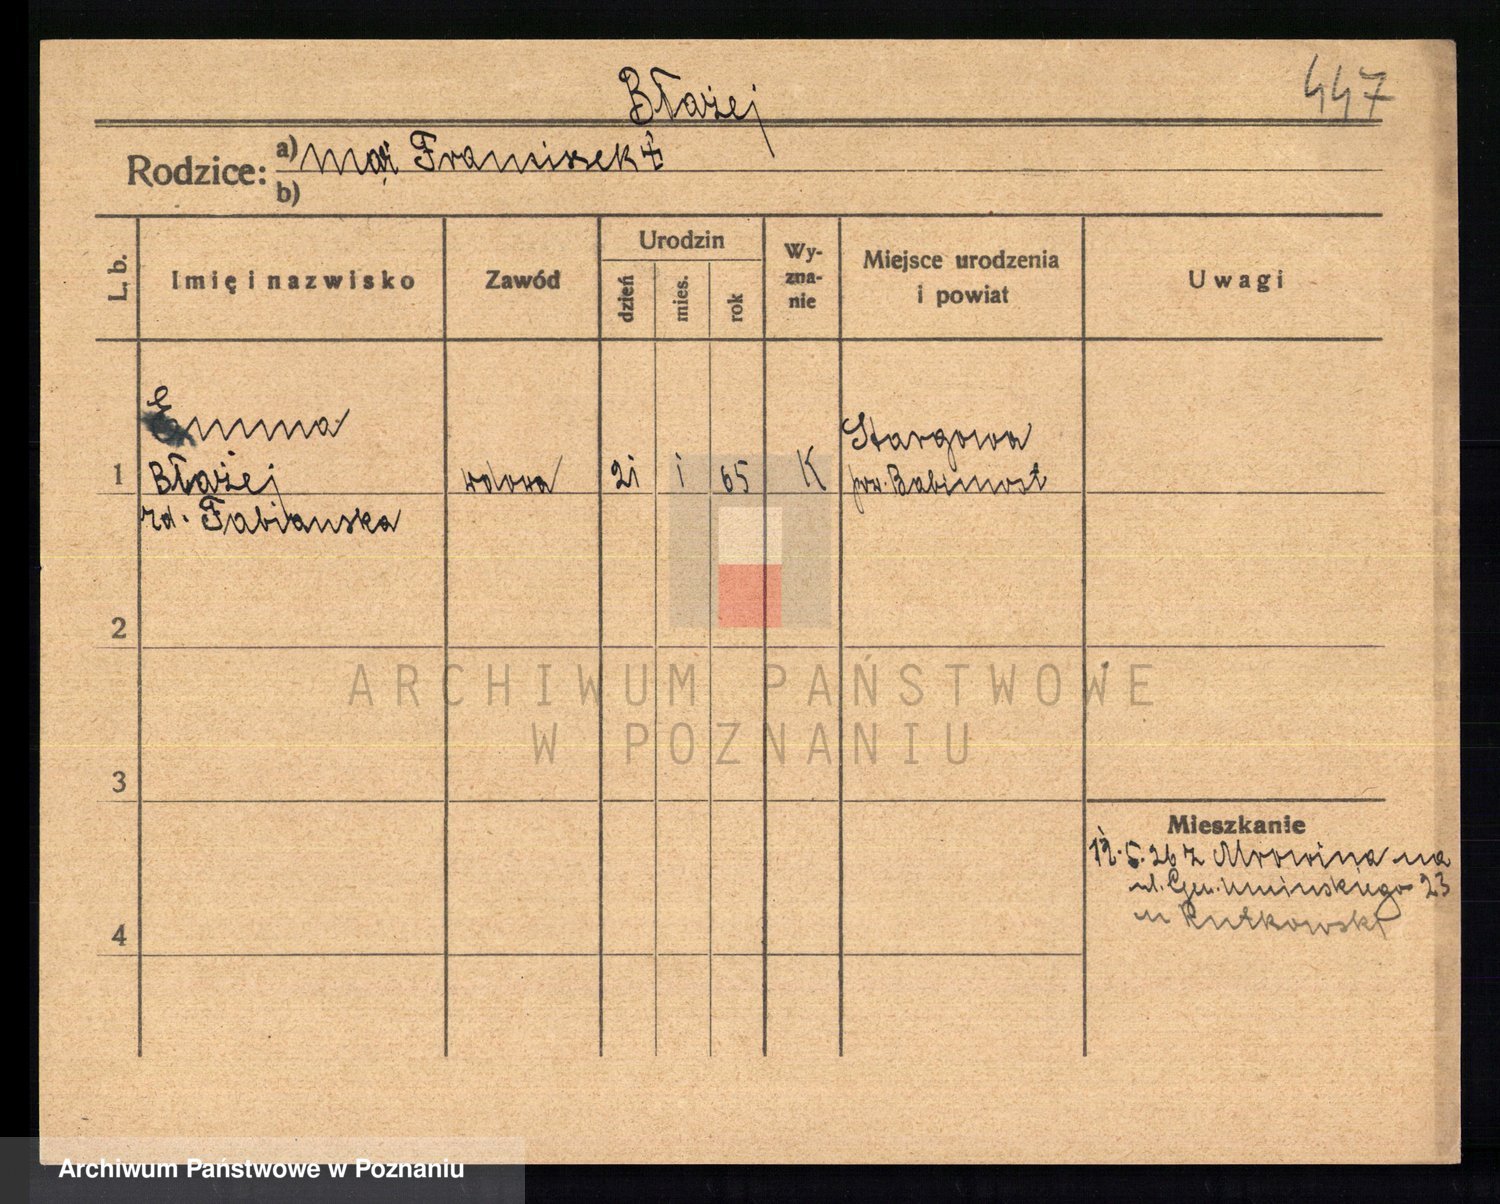 447
Błażej
Rodzice:
a) Mąż Franciszek ‡
b)
L. b.
Imię i nazwisko
Zawód
Urodzin
dzień
mies.
rok
Wy-
zna-
nie
Miejsce urodzenia
i powiat
Uwagi
1
Emma
Błażej
rd. Fabianska
wdowa
21
1
65
K
Stargowa
pow. Babimost
2
3
4
Mieszkanie
12.5.26 z Mrowina na
ul. Gen. Umińskiego 23
u Rutkowski
ARCHIWUM PAŃSTWOWE
W POZNANIU
Archiwum Państwowe w Poznaniu